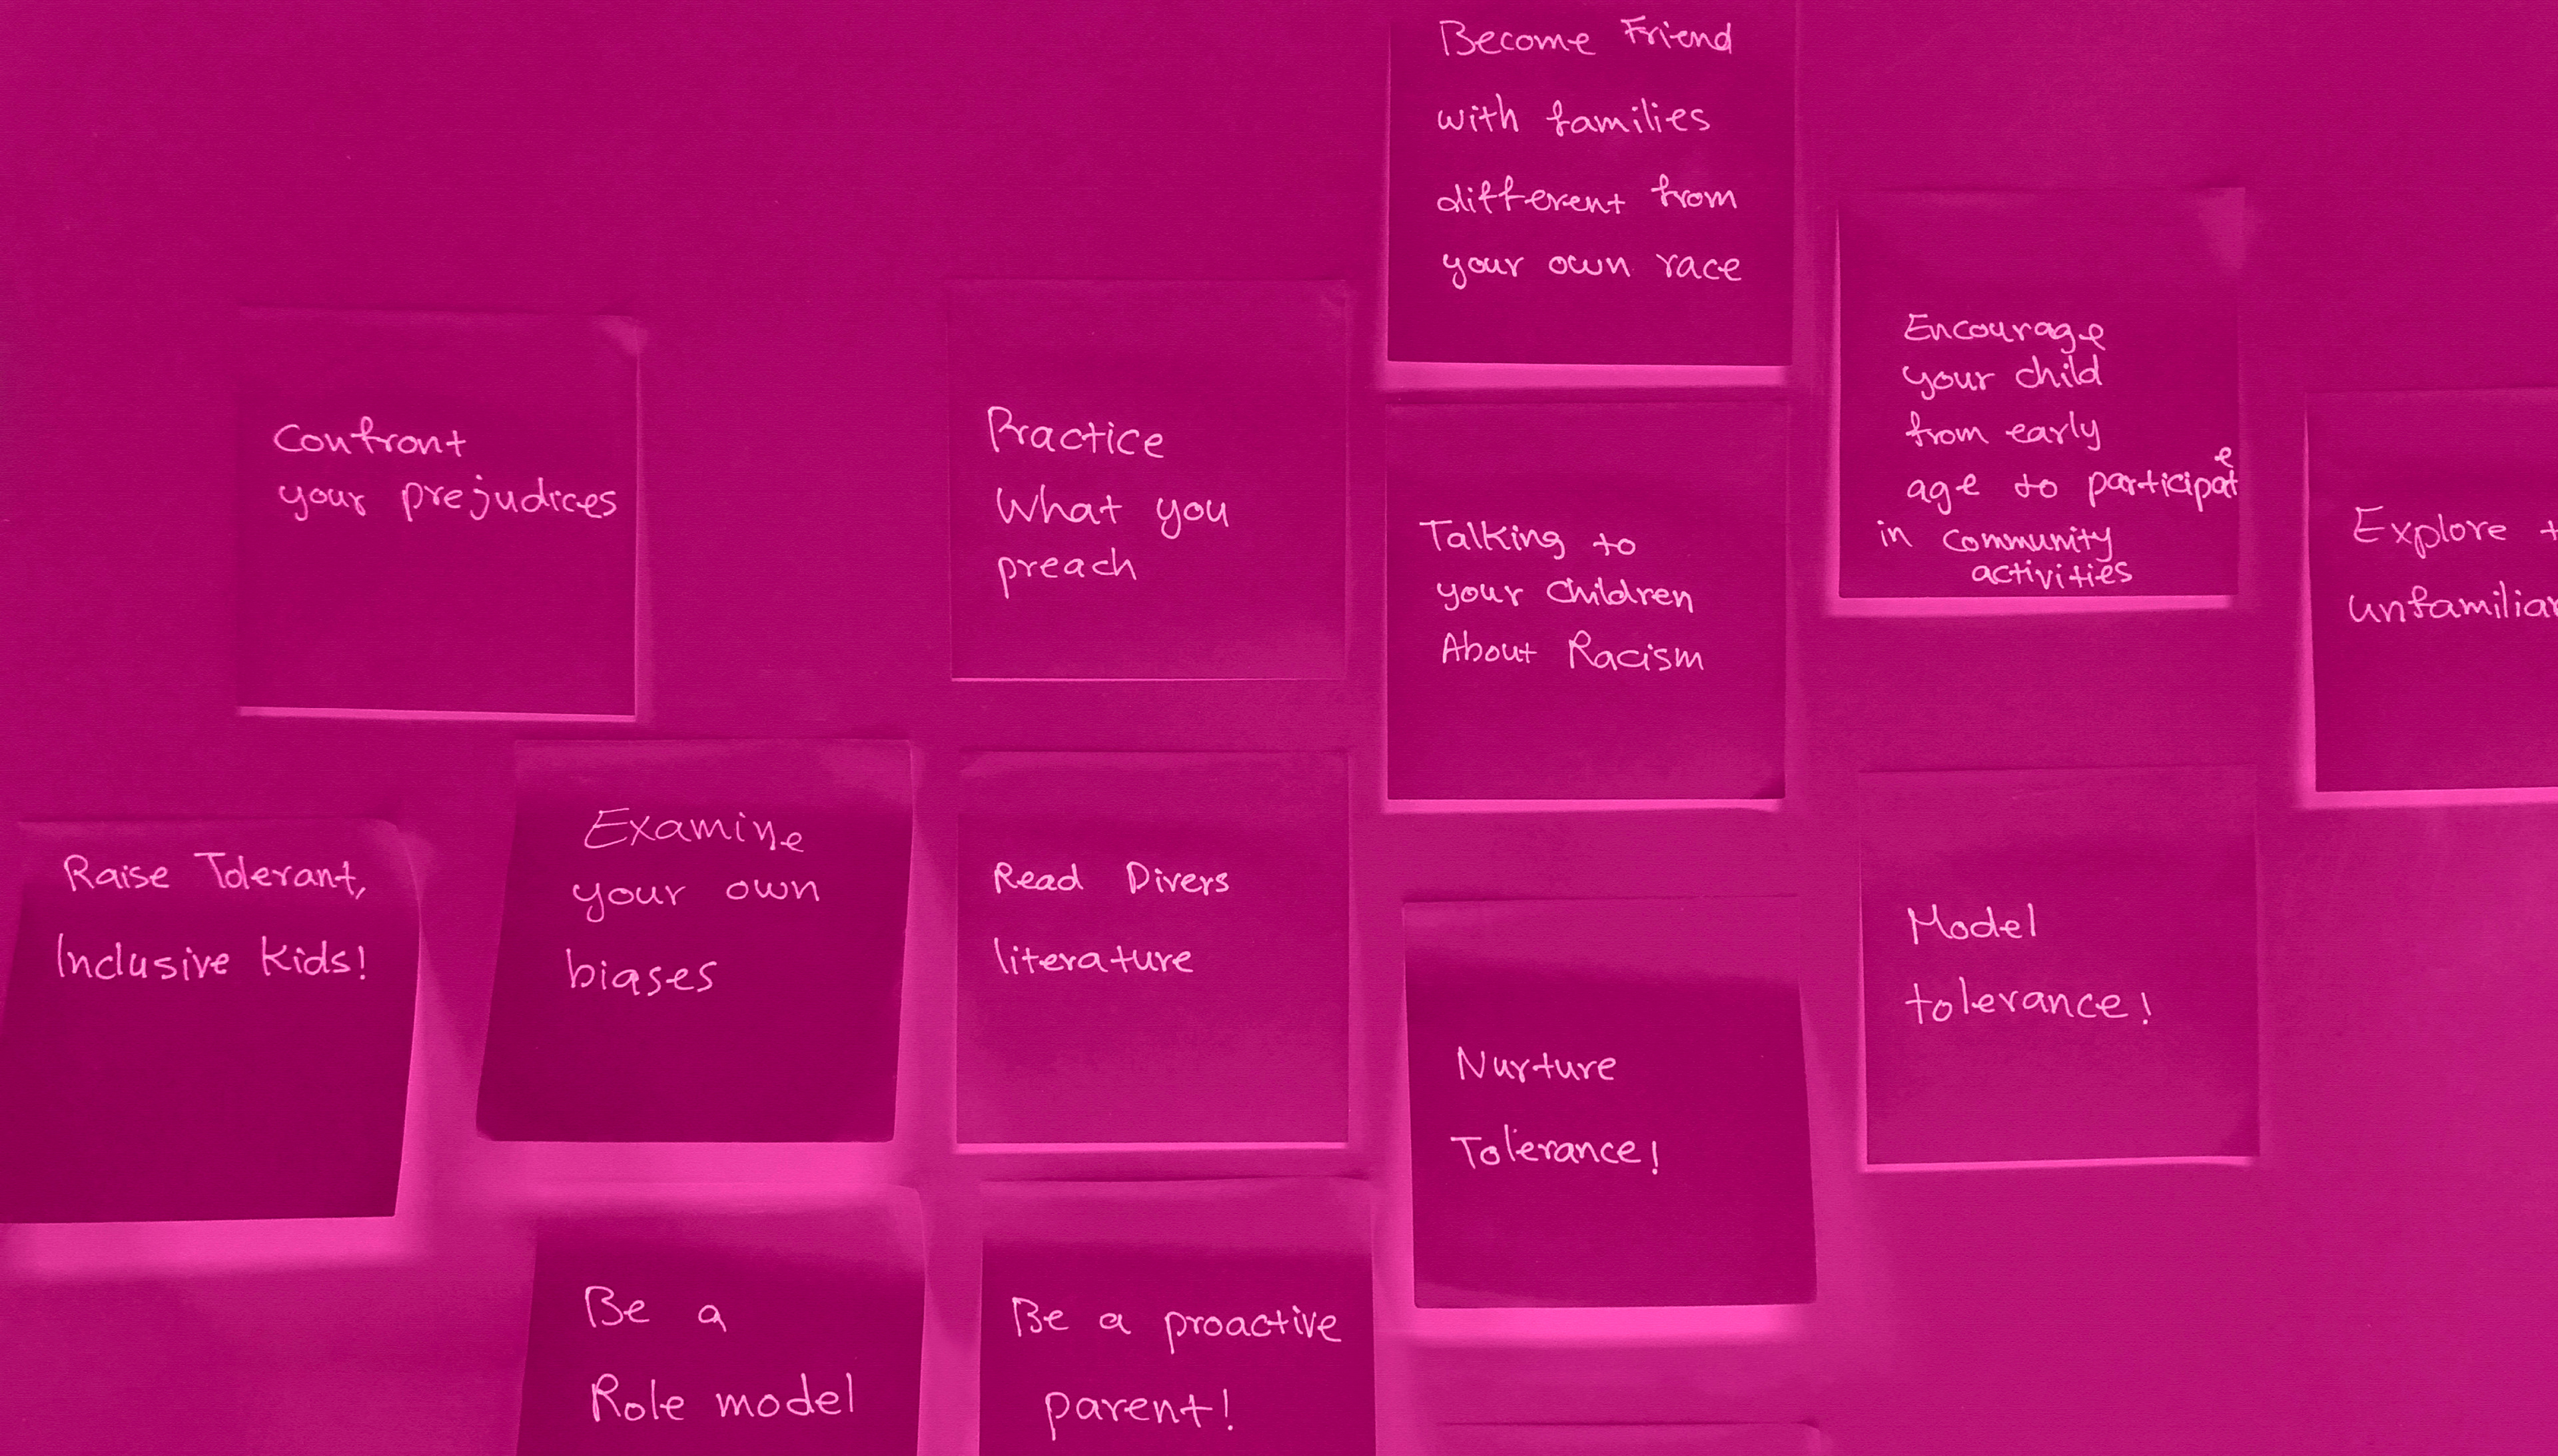 Become Friend
with families
different from
your own race
Encourage
your child
from early
age to participate
in community
activities
Confront
your prejudices
Practice
What you
preach
Talking to
your Children
About Racism
Explore
unfamiliar
Raise Tolerant,
Inclusive Kids!
Examine
your own
biases
Read Divers
literature
Model
tolerance!
Nurture
Tolerance!
Be a
Role model
Be a proactive
parent!